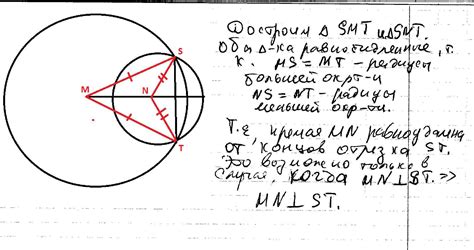 S
M
N
T
Достроим Δ SMT и ΔSNT.
Оба Δ-ка равнобедренные, т.
к. MS = MT - радиусы
большей окр-ти
NS = NT - радиусы
меньшей окр-ти.
Т.е. прямая MN равноудалена
от концов отрезка ST.
Это возможно только в
случае, когда MN⊥ST. =>
MN⊥ST.